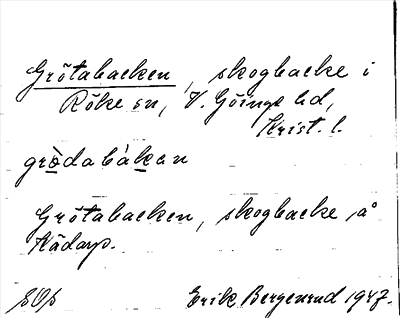 Grötabacken, skogbacke i
Röke sn, V. Göinge hd,
Krist. l.
grödabàkan
Grötabacken, skogbacke å
Kädarp.
Erik Bergenrud 1947.